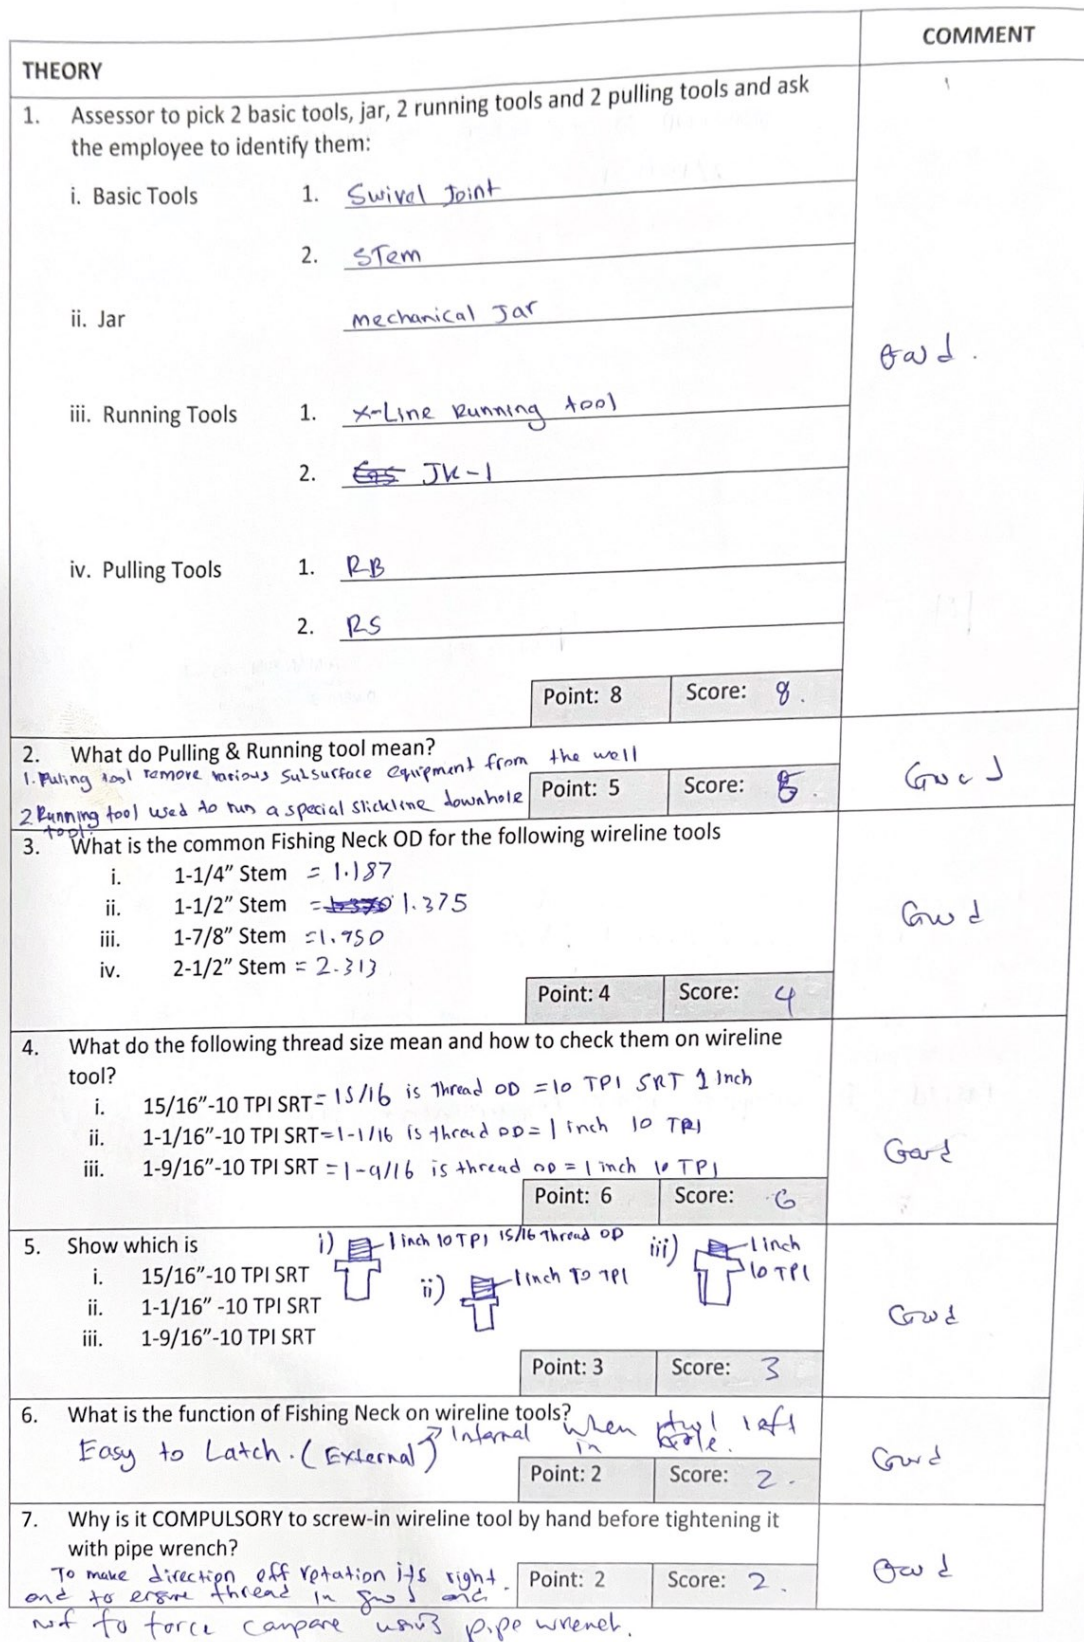 COMMENT
THEORY
1. Assessor to pick 2 basic tools, jar, 2 running tools and 2 pulling tools and ask
the employee to identify them:
i. Basic Tools 1. Swivel Joint
2. STem
ii. Jar mechanical Jar
Good.
iii. Running Tools 1. X-Line Running tool
2. JK-1
iv. Pulling Tools 1. RB
2. RS
Point: 8 Score: 8.
2. What do Pulling & Running tool mean?
1. Puling tool remove various subsurface equipment from the well
Point: 5 Score: 5. Good
2. Running tool used to run a special slickline downhole
tool.
3. What is the common Fishing Neck OD for the following wireline tools
i. 1-1/4" Stem = 1.187
ii. 1-1/2" Stem = 1.375 Good
iii. 1-7/8" Stem = 1.750
iv. 2-1/2" Stem = 2.313
Point: 4 Score: 4
4. What do the following thread size mean and how to check them on wireline
tool?
i. 15/16"-10 TPI SRT = 15/16 is Thread OD = 10 TPI SRT 1 Inch
ii. 1-1/16"-10 TPI SRT = 1-1/16 is thread OD = 1 inch 10 TPI
iii. 1-9/16"-10 TPI SRT = 1-9/16 is thread OD = 1 inch 10 TPI
Good
Point: 6 Score: 6
5. Show which is i) 1 inch 10 TPI 15/16 Thread OD iii) 1 inch
10 TPI
i. 15/16"-10 TPI SRT ii) 1 inch 10 TPI
ii. 1-1/16" -10 TPI SRT
iii. 1-9/16"-10 TPI SRT
Good
Point: 3 Score: 3
6. What is the function of Fishing Neck on wireline tools?
Easy to Latch. (External) Internal when left
in hole.
Point: 2 Score: 2. Good
7. Why is it COMPULSORY to screw-in wireline tool by hand before tightening it
with pipe wrench?
To make direction off rotation its right.
and to ensure thread in good and
not to force compare using pipe wrench.
Point: 2 Score: 2. Good